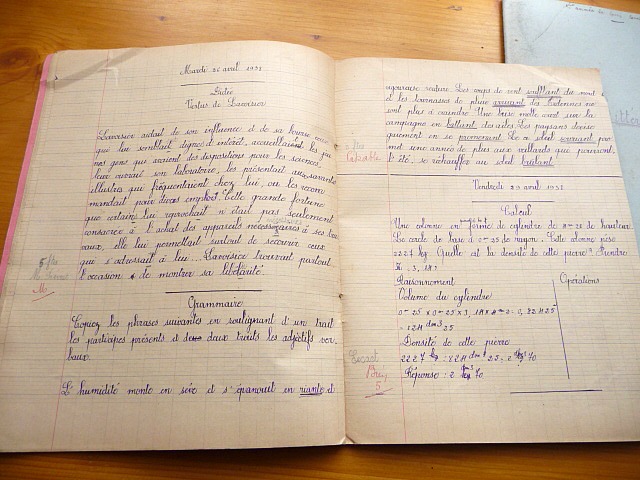 Mardi 26 avril 1938
Dictée
Vertus de Lavoisier
Lavoisier aidait de son influence et de sa bourse ceux
qui lui semblait dignes d'intérêt, accueillaient les jeu
nes gens qui avaient des dispositions pour les sciences,
leur ouvrait son laboratoire, les présentait aux savants
illustres qui fréquentaient chez lui, ou les recom
mandait pour divers emplois. Cette grande fortune
que certains lui reprochait n'était pas seulement
consacrée à l'achat des appareils nécessaires à ses tra
vaux, elle lui permettait surtout de secourir ceux
qui s'adressait à lui... Lavoisier trouvait partout
l'occasion de montrer sa libéralité.
Grammaire
Copiez les phrases suivantes en soulignant d'un trait
les participes présents et de deux traits les adjectifs ver
baux.
L'humidité monte en sève et s'épanouit en riante et
vigoureuse verdure. Les coups de vent soufflant du nord
et les bourrasques de pluie arrivant des Ardennes ne
sont plus à craindre. Une brise molle court sur la
campagne en battant des ailes. Les paysans
en se promenant. Le ciel souriant pro
met une année de plus aux vieillards qui pourront,
l'été, se réchauffer au soleil brûlant.
Passable
Vendredi 29 avril 1938
Calcul
Une colonne en forme de cylindre de
Le cercle de base a 0m 25 de rayon. Cette colonne pèse
2227 kg. Quelle est la densité de cette pierre? Prendre
π: 3,14.
Raisonnement
Opérations
Volume du cylindre
Densité de cette pierre
Réponse:
Exact
Bien
5